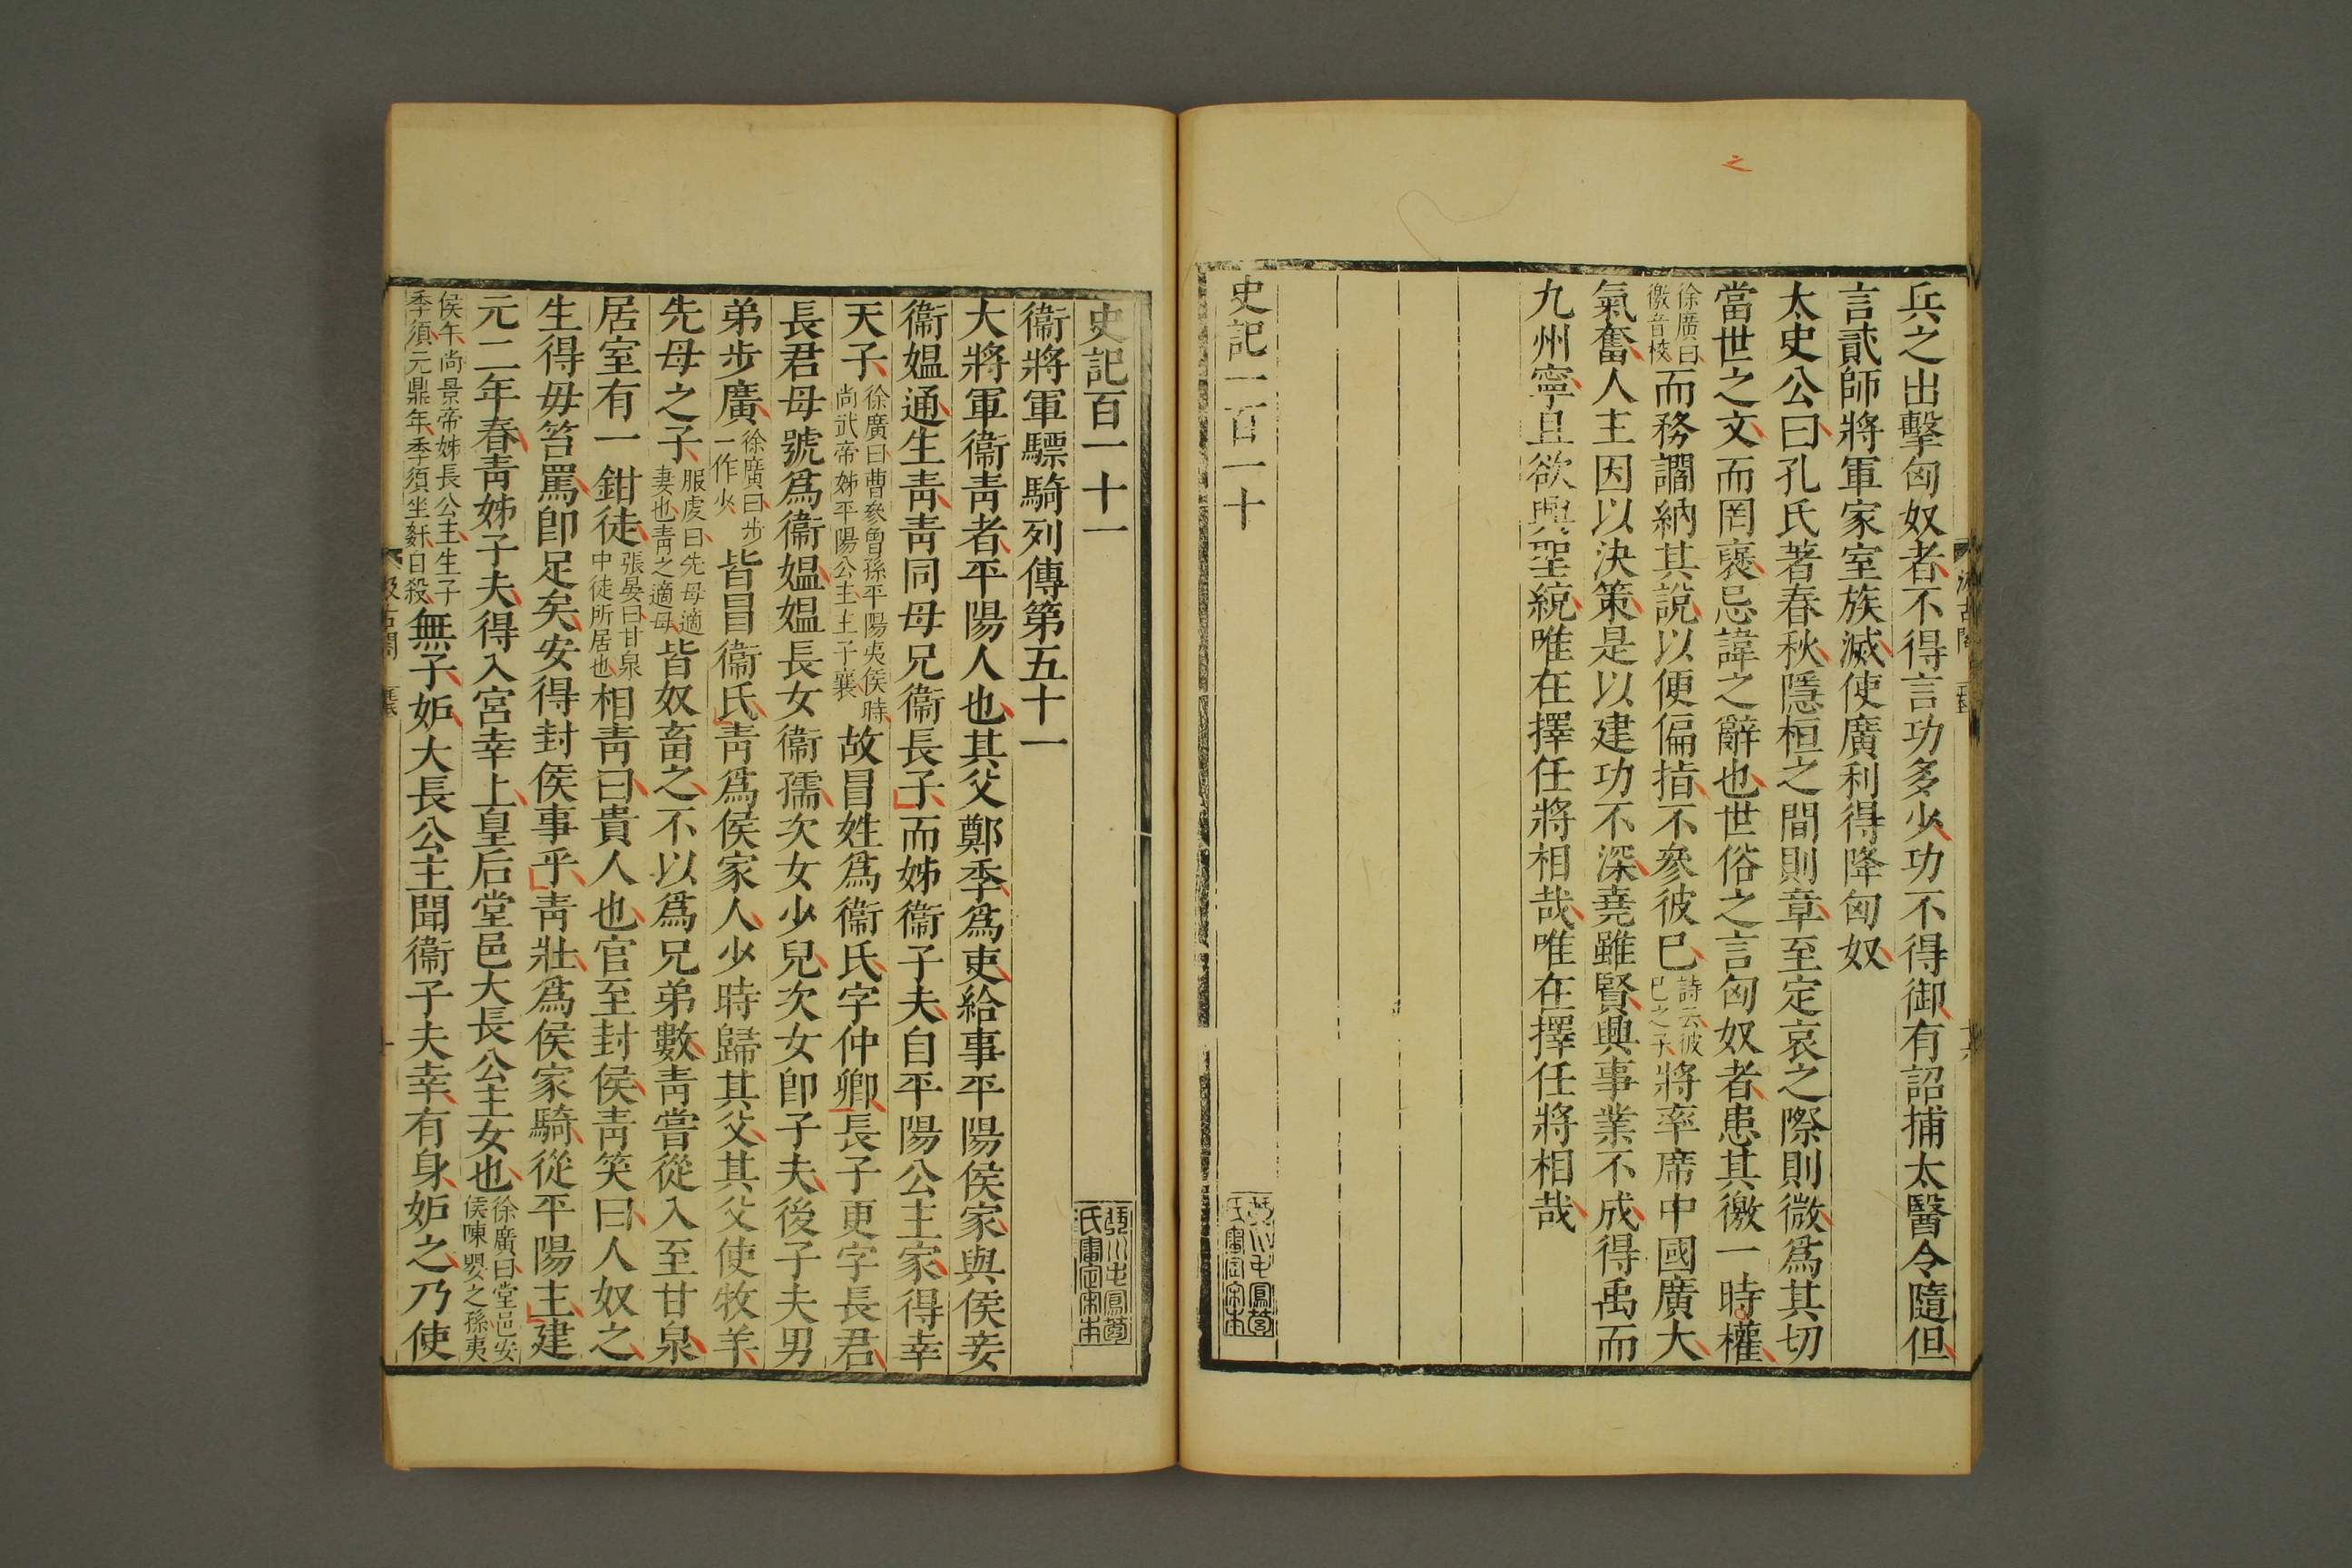 之
兵之出擊匈奴者不得言功多少功不得御有詔捕太醫令隨但
言貳師將軍家室族滅使廣利得降匈奴
太史公曰孔氏著春秋隱桓之間則章至定哀之際則微爲其切
當世之文而罔襃忌諱之辭也世俗之言匈奴者患其徼一時權
徐廣曰徼音㤭而務讇納其說以便偏指不參彼巳詩云彼巳之子將率席中國廣大
氣奮人主因以決策是以建功不深堯雖賢興事業不成得禹而
九州寧且欲興聖統唯在擇任將相哉唯在擇任將相哉
史記一百一十
史記百一十一
衞將軍驃騎列傳第五十一
大將軍衞靑者平陽人也其父鄭季爲吏給事平陽侯家與侯妾
衞媼通生靑靑同母兄衞長子而姊衞子夫自平陽公主家得幸
天子徐廣曰曹參曾孫平陽夷侯時尚武帝姊平陽公主生子襄故冒姓爲衞氏字仲卿長子更字長君
長君母號爲衞媼媼長女衞孺次女少兒次女卽子夫後子夫男
弟步廣徐廣曰步一作少皆冒衞氏靑爲侯家人少時歸其父其父使牧羊
先母之子服虔曰先母適妻也靑之適母皆奴畜之不以爲兄弟數靑嘗從入至甘泉
居室有一鉗徒張晏曰甘泉中徒所居也相靑曰貴人也官至封侯靑笑曰人奴之
生得毋笞罵卽足矣安得封侯事乎靑壯爲侯家騎從平陽主建
元二年春靑姊子夫得入宮幸上皇后堂邑大長公主女也徐廣曰堂邑安侯陳嬰之孫夷
侯午尚景帝姊長公主生子季須元鼎年季須坐姧自殺無子妒大長公主聞衞子夫幸有身妒之乃使